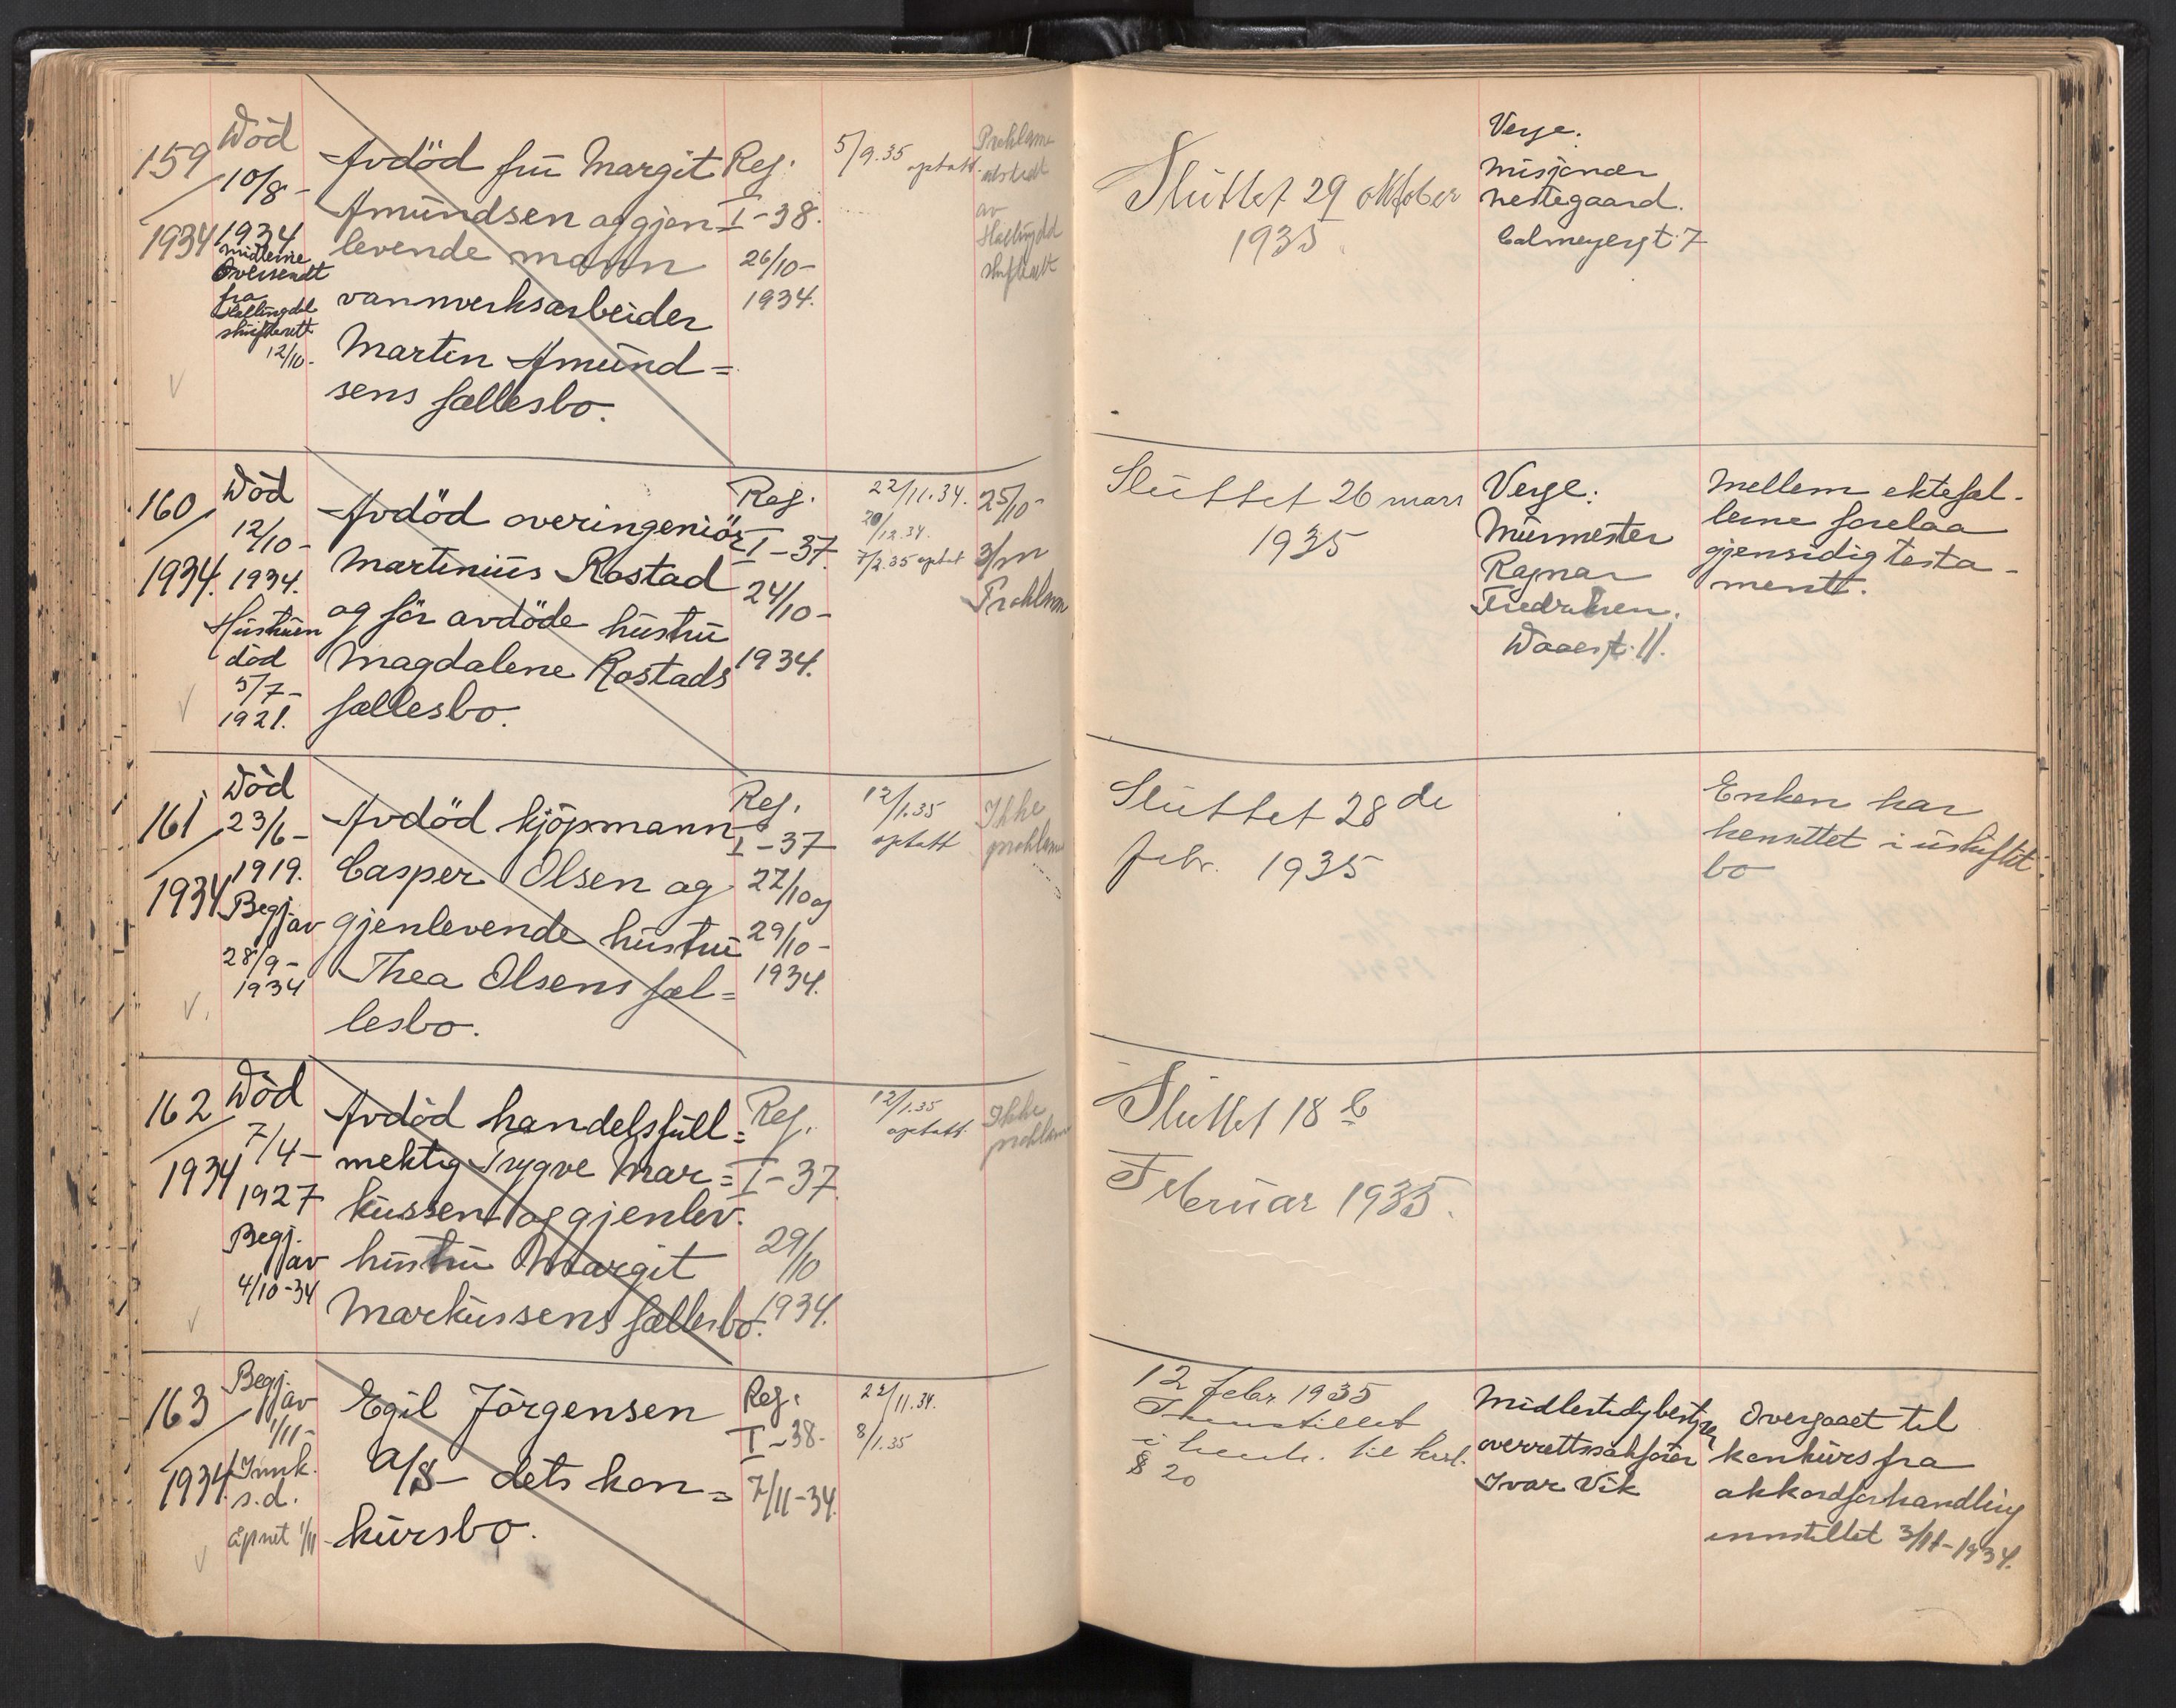 159
1934
Död
10/8 -
1934
midlerne
oversendt
fra
Hallingdal
skifterett
12/10-
Avdöd fru Margit
Amundsen og gjen
levende mann
vannverksarbeider
Martin Amund=
sens fællesbo.
Reg.
I-38.
26/10-
1934.
5/9.35
optatt.
Proklama
utstedt
av
Hallingdal
skifterett
Sluttet 29 oktober
1935
Verge:
Misjonær
Nestegaard.
Calmeyersgt. 7
160
1934.
Död
12/10-
1934.
Hustruen
död
5/7-
1921.
Avdöd overingeniör
Martinius Rostad
og för avdöde hustru
Magdalene Rostads
fællesbo.
Reg.
I-37.
24/10-
1934.
22/11.34.
20/12.34.
7/2.35 optat
25/10-
3/m
Proklam
Sluttet 26 mars
1935
Verge:
Murmester
Ragnar
Fredriksen.
Waaesgt. 11.
Mellem ektefæl-
lerne forelaa
gjensidig testa-
mentt.
161
1934
Död
23/6-
1919.
Begj. av
28/9-
1934
Avdöd kjöpmann
Casper Olsen og
gjenlevende hustru
Thea Olsens fæl=
lesbo.
Reg.
I-37
27/10 og
29/10-
1934.
12/1.35
optatt
Ikke
proklam
Sluttet 28 de
febr. 1935
Enken har
hensittet i uskiftet
bo
162
1934
Död
7/4-
1927
Begj.
av
4/10-34
Avdöd handelsfull=
mektig Trygve Mar=
kussen og gjenlev.
hustru Margit
Markussens fællesbo.
Reg.
I-37
29/10
1934.
12/1.35
optatt.
Ikke
proklam
Sluttet 18
Februar 1935.
163
1934.
Begj.
av
1/11-
Innk.
s.d.
åpnet 1/11
Egil Jörgensen
A/S - dets kon=
kursbo.
Reg.
I-38.
7/11-34.
22/11.34.
8/1.35
12 febr 1935
Innstillet
i henh. til kksl.
§ 20
Midlertidig bestyrer
overrettssakförer
Ivar Vik
Overgaaet til
konkurs fra
akkordforhandling
innstillet 3/11-1934.